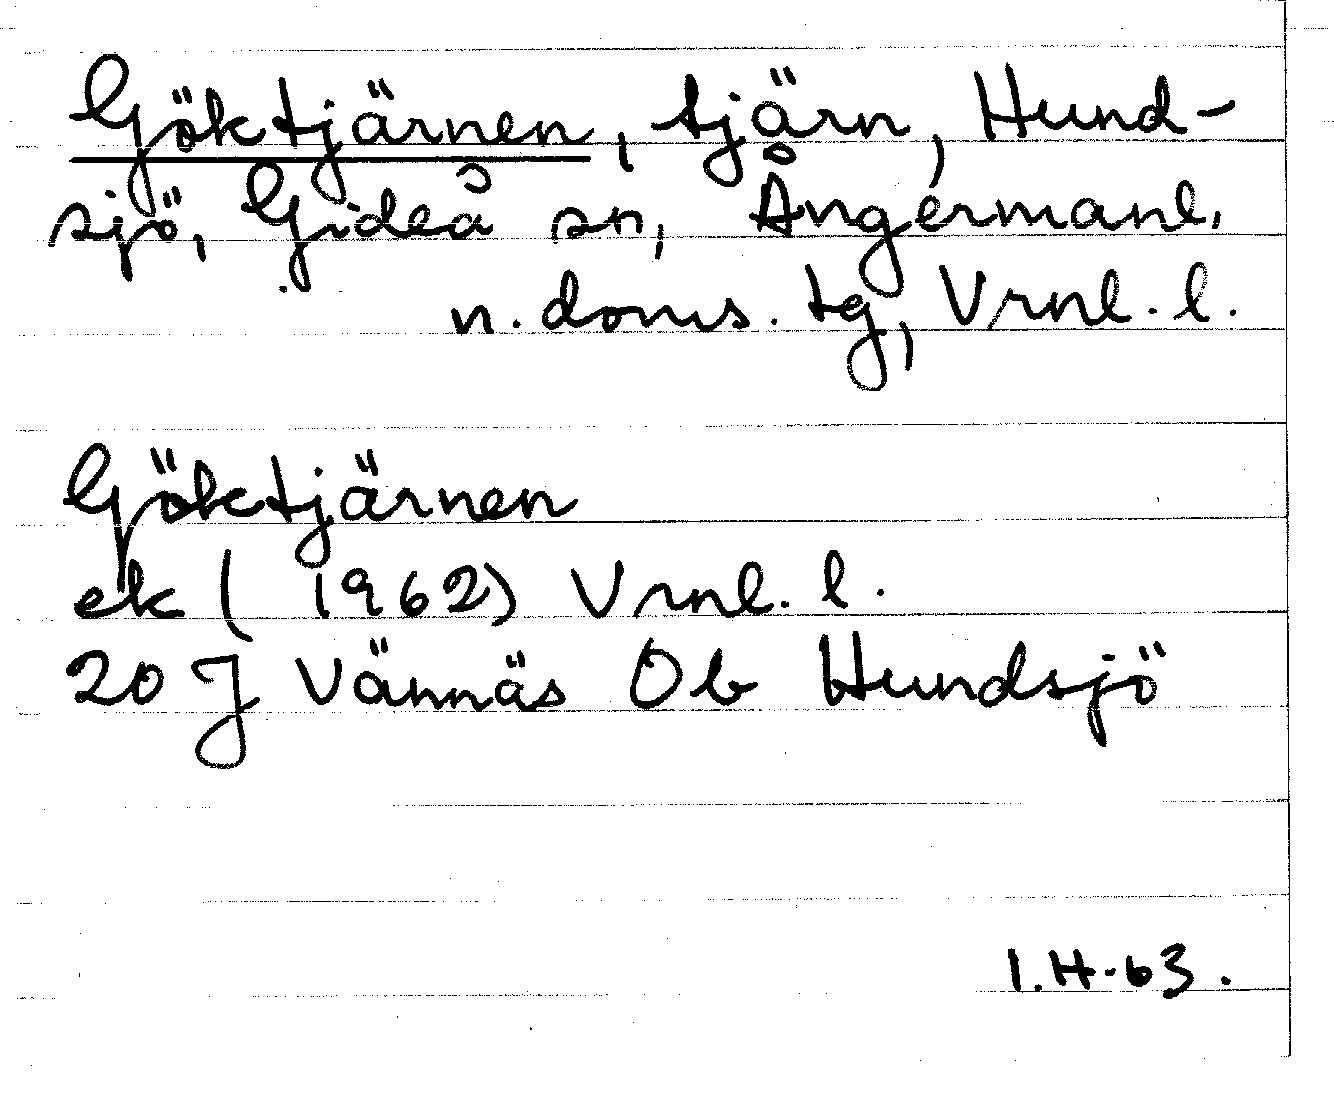 Göktjärnen, tjärn, Hund-
sjö, Gideå sn, Ångermanl.
n. doms. tg, Vrnl. l.
Göktjärnen
ek ( 1962) Vrnl. l.
20 J Vännäs Ob Hundsjö
I.H.63.